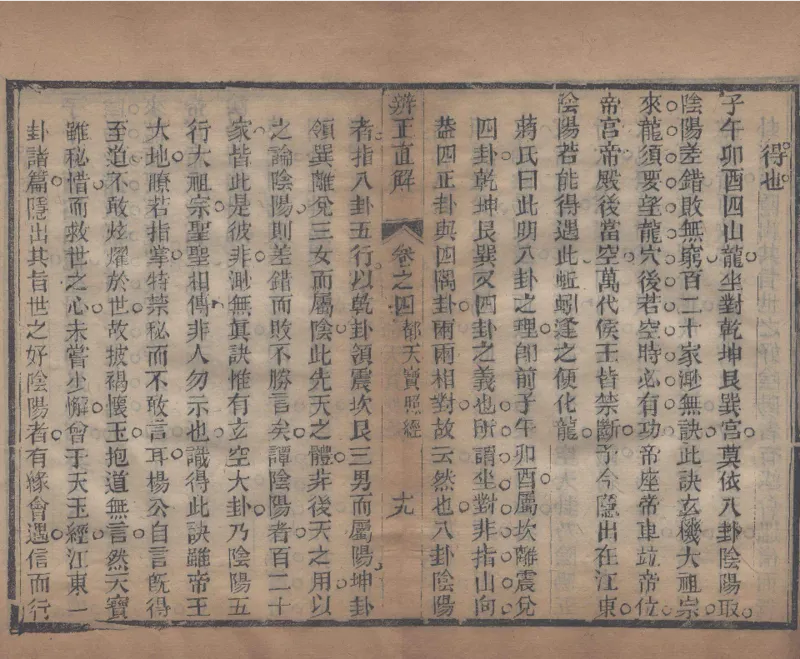 得也
子午卯酉四山龍坐對乾坤艮巽宮莫依八卦陰陽取
陰陽差錯敗無窮百二十家渺無訣此訣玄機大祖宗
來龍須要望龍穴後若空時必有功帝座帝車竝帝位
帝宮帝殿後當空萬代侯王皆禁斷予今隱出在江東
陰陽若能得遇此蚯蚓逢之便化龍
蔣氏曰此明八卦之理卽前子午卯酉屬坎離震兌
四卦乾坤艮巽又四卦之義也所謂坐對非指山向
葢四正卦與四隅卦兩兩相對故云然也八卦陰陽
辨正直解 卷之四 都天寶照經 十九
者指八卦五行以乾卦領震坎艮三男而屬陽坤卦
領巽離兌三女而屬陰此先天之體非後天之用以
之論陰陽則差錯而敗不勝言矣譚陰陽者百二十
家皆此是彼非渺無眞訣惟有玄空大卦乃陰陽五
行大祖宗聖聖相傳非人勿示也識得此訣雖帝王
大地瞭若指掌特禁秘而不敢言耳楊公自言旣得
至道不敢炫耀於世故披褐懷玉抱道無言然天寶
雖秘惜而救世之心未嘗少懈會于天玉經江東一
卦諸篇隱出其旨世之好陰陽者有緣會遇信而行